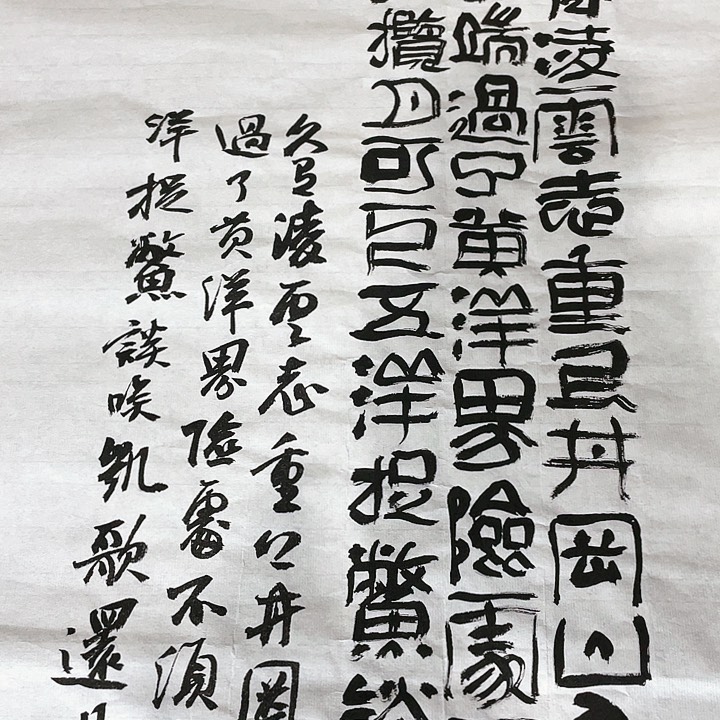 淩雲志重上井岡山
端過了黃洋界險處
攬月可下五洋捉鱉
久有淩雲志重上井岡
過了黃洋界險處不須
洋捉鱉談笑凱歌還